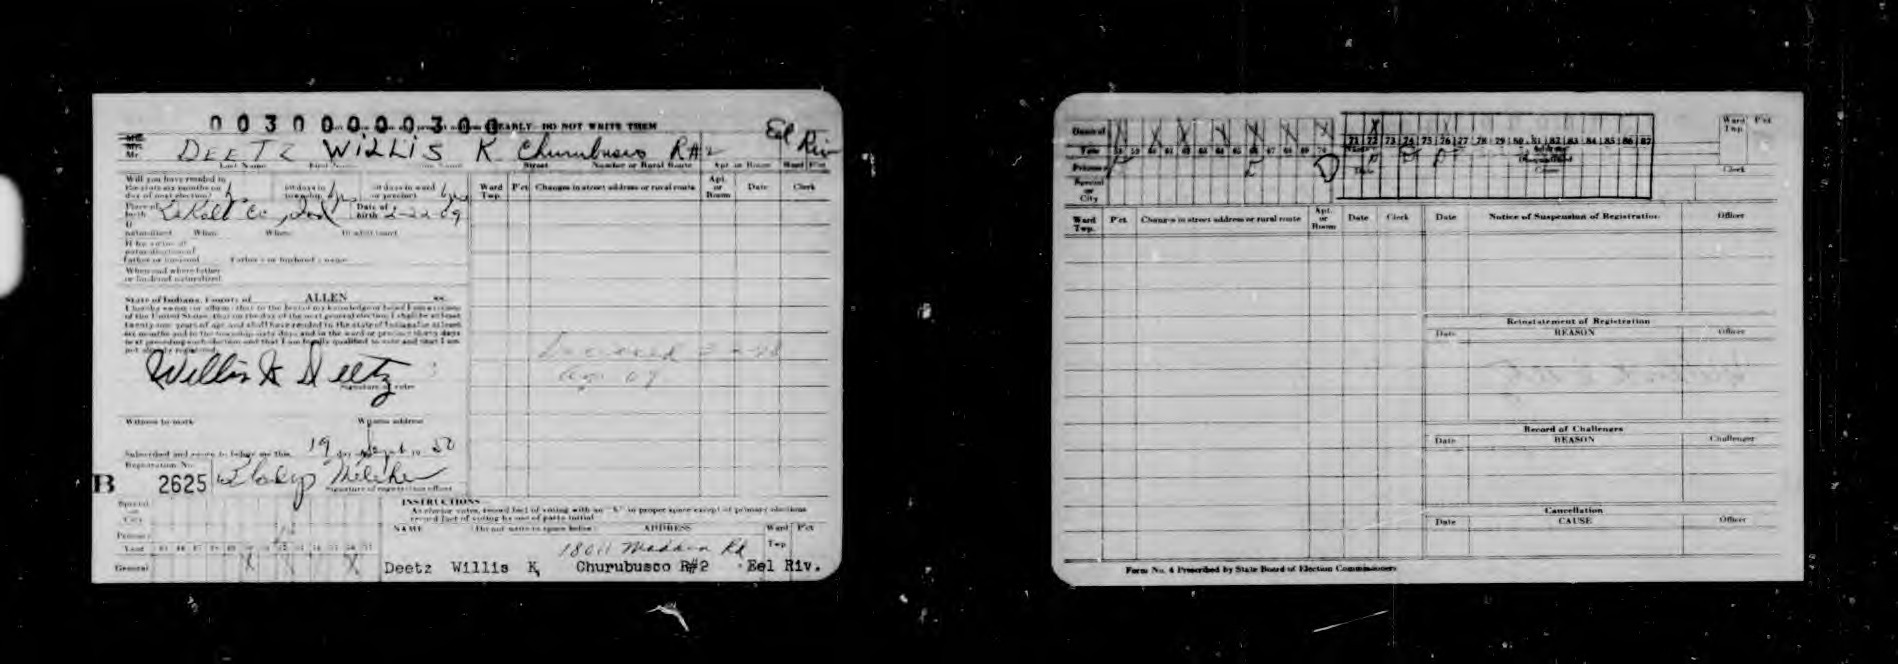 0 0 3 0 0 0 0 0 3 0 0 EARLY—DO NOT WRITE THEM
Eel Riv
Mr. DEETZ WILLIS K Churubusco R#2
Last Name First Name Street Number or Rural Route Apt. or Room Ward P'ct
Will you have resided in
the state six months on
day of next election? 60 days in township 30 days in ward or precinct
Place of birth DeKalb Co, Ind Date of birth 2-22-09
If naturalized When Where In what court
If by virtue of
naturalization of
father or husband Father's or husband's name
When and where father
or husband naturalized
State of Indiana, County of ALLEN ss.
I hereby swear (or affirm) that to the best of my knowledge or belief I am a citizen
of the United States, that on the day of the next general election, I shall be at least
twenty-one years of age and shall have resided in the state of Indiana for at least
six months and in the township sixty days and in the ward or precinct thirty days
next preceding such election and that I am legally qualified to vote and that I am
not already registered.
Willis K Deetz
Signature of voter
Witness to mark Witness address
Subscribed and sworn to before me this 19 day Sept 19 50
Registration No.
B 2625
Signature of registration officer
Ward Twp. P'ct Changes in street address or rural route Apt. or Room Date Clerk
Deceased
Age 69
Special or City
Primary
Year
General
INSTRUCTIONS
As elector votes, record fact of voting with an "X" in proper space except at primary elections
record fact of voting by use of party initial
NAME (Do not write in space below) ADDRESS Ward Twp. P'ct
18011 Madden Rd
Deetz Willis K Churubusco R#2 Eel Riv.
General X X X X X X X
Year 58 59 60 61 62 63 64 65 66 67 68 69 70
Primary
Special or City
71 72 73 74 75 76 77 78 79 80 81 82 83 84 85 86 87
Ward Twp. P'ct
Clerk
Ward Twp. P'ct Changes in street address or rural route Apt. or Room Date Clerk
Date Notice of Suspension of Registration Officer
Reinstatement of Registration
Date REASON Officer
Record of Challenges
Date REASON Challenger
Cancellation
Date CAUSE Officer
Form No. 4 Prescribed by State Board of Election Commissioners